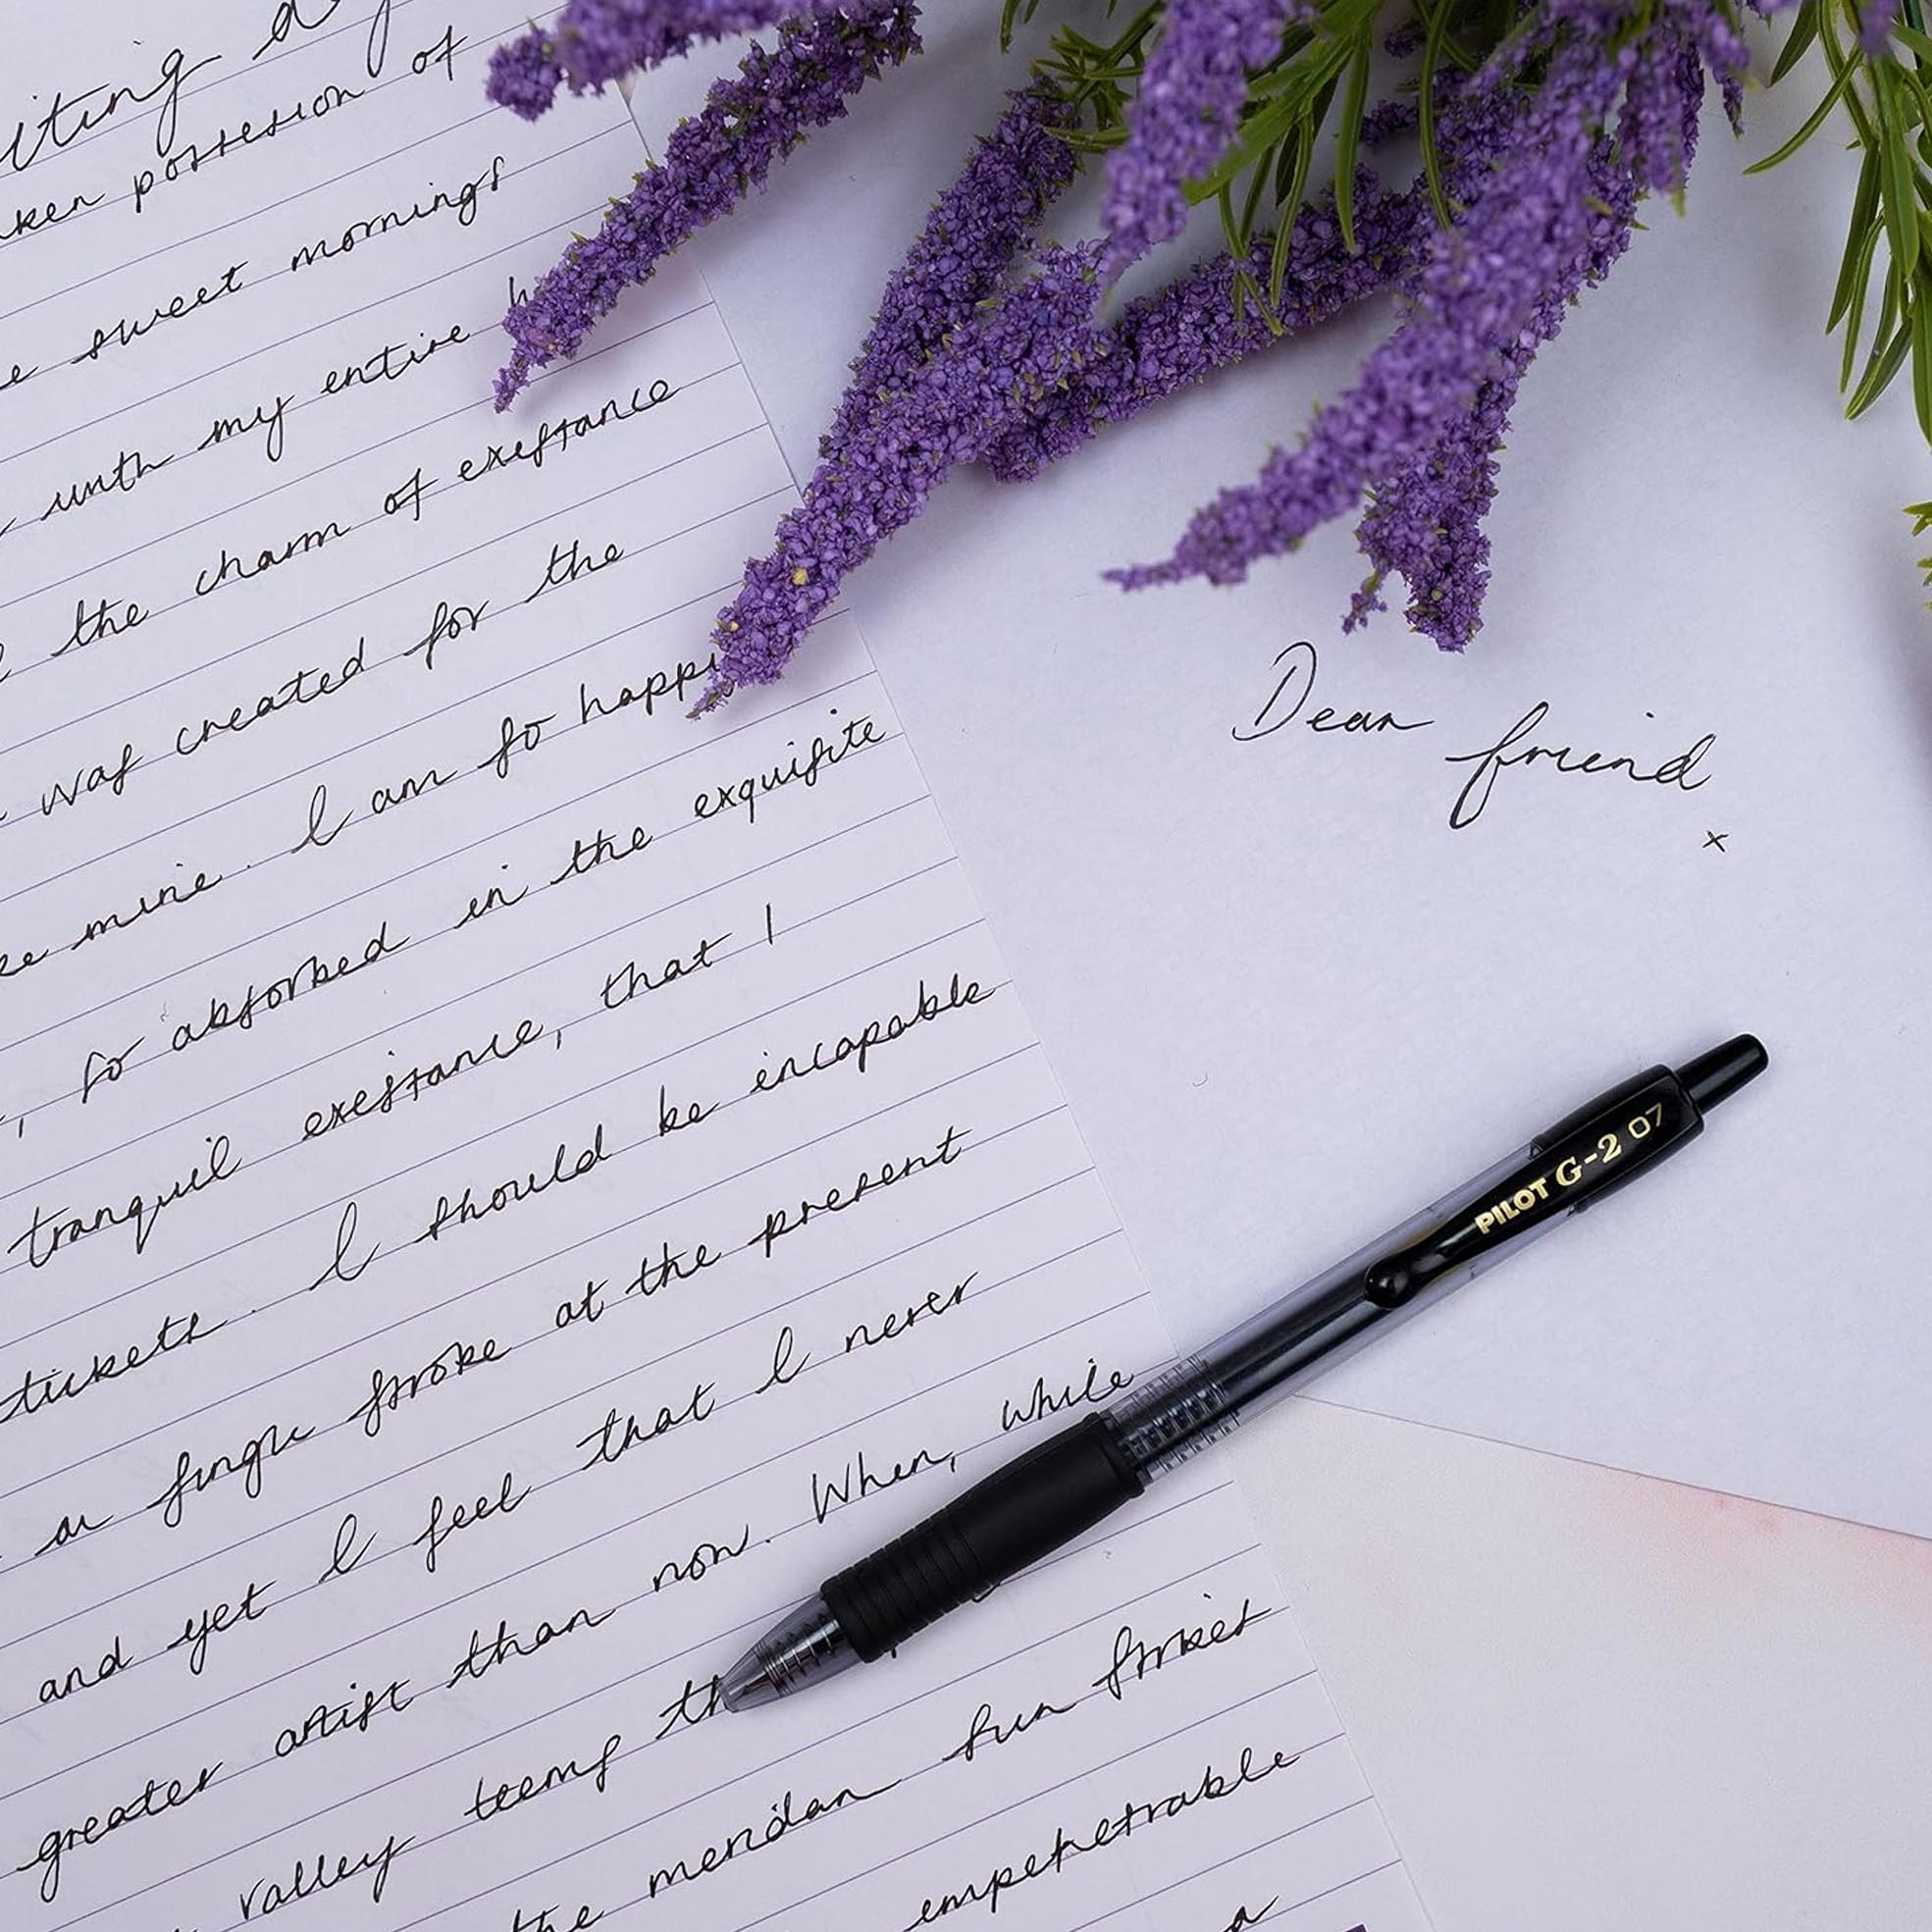 iting a
ken possession of
sweet mornings
with my entire
the charm of exestance
was created for the
mine. I am so happ
, so absorbed in the exquisite
tranquil exestance, that I
tickets. I should be incapable
a single stroke at the present
and yet I feel that I never
greater artist than now. When, while
valley teems th
the meridan sun strikes
empenetrable
a
Dear friend
x
PILOT G-2 07